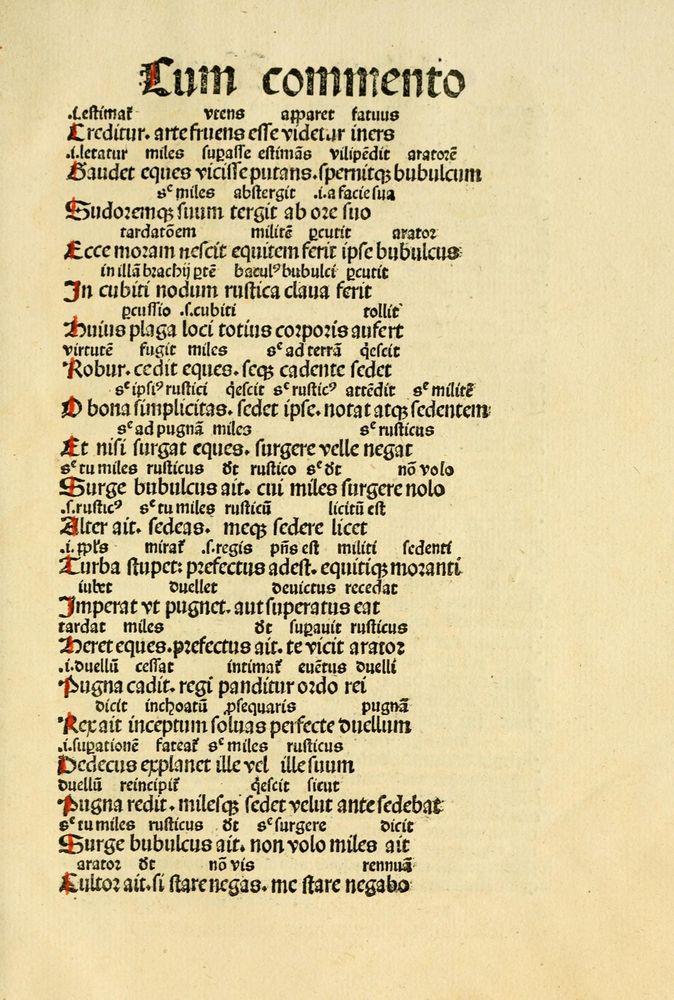 Cum commento
.i.estimat᷑ vtens apparet fatuus
Creditur. arte fruens esse videtur iners
.i.letatur miles suꝑasse estimãs vilipẽdit aratorẽ
Gaudet eques vicisse putans. spernitqꝫ bubulcum
sꝫ miles abstergit .i.a facie sua
Sudoremqꝫ suum tergit ab ore suo
tardatõem militẽ ꝑcutit arator
Ecce moram nescit equitem ferit ipse bubulcus
in illã brachij ꝑtẽ baculꝰ bubulci ꝑcutit
In cubiti nodum rustica claua ferit
ꝑcussio .s.cubiti tollit
Huius plaga loci totius corporis aufert
virtutẽ fugit miles sꝫ ad terrã q̇escit
Robur. cedit eques. seqꝫ cadente sedet
sꝫ ipsiꝰ rustici q̇escit sꝫ rusticꝰ attẽdit sꝫ militẽ
O bona simplicitas. sedet ipse. notat atqꝫ sedentem
sꝫ ad pugnã miles sꝫ rusticus
Et nisi surgat eques. surgere velle negat
sꝫ tu miles rusticus dt rustico sꝫ dt nõ volo
Surge bubulcus ait. cui miles surgere nolo
.s.rusticꝰ sꝫ tu miles rusticũ licitũ est
Alter ait. sedeas. meqꝫ sedere licet
.i.ppl's mirat᷑ .s.regis pñs est militi sedenti
Turba stupet: prefectus adest. equitiqꝫ moranti
iubet duellet deuictus recedat
Imperat vt pugnet. aut superatus eat
tardat miles dt suꝑauit rusticus
Heret eques. prefectus ait. te vicit arator
.i.duellũ cessat intimat᷑ euẽtus duelli
Pugna cadit. regi panditur ordo rei
dicit inchoatũ ꝓsequaris pugnã
Rex ait inceptum soluas perfecte duellum
.i.suꝑationẽ fateat᷑ sꝫ miles rusticus
Dedecus explanet ille vel ille suum
duellũ reincipit᷑ q̇escit sicut
Pugna redit. milesqꝫ sedet velut ante sedebat
sꝫ tu miles rusticus dt sꝫ surgere dicit
Surge bubulcus ait. non volo miles ait
arator dt nõ vis rennuã
Cultor ait. si stare negas. me stare negabo